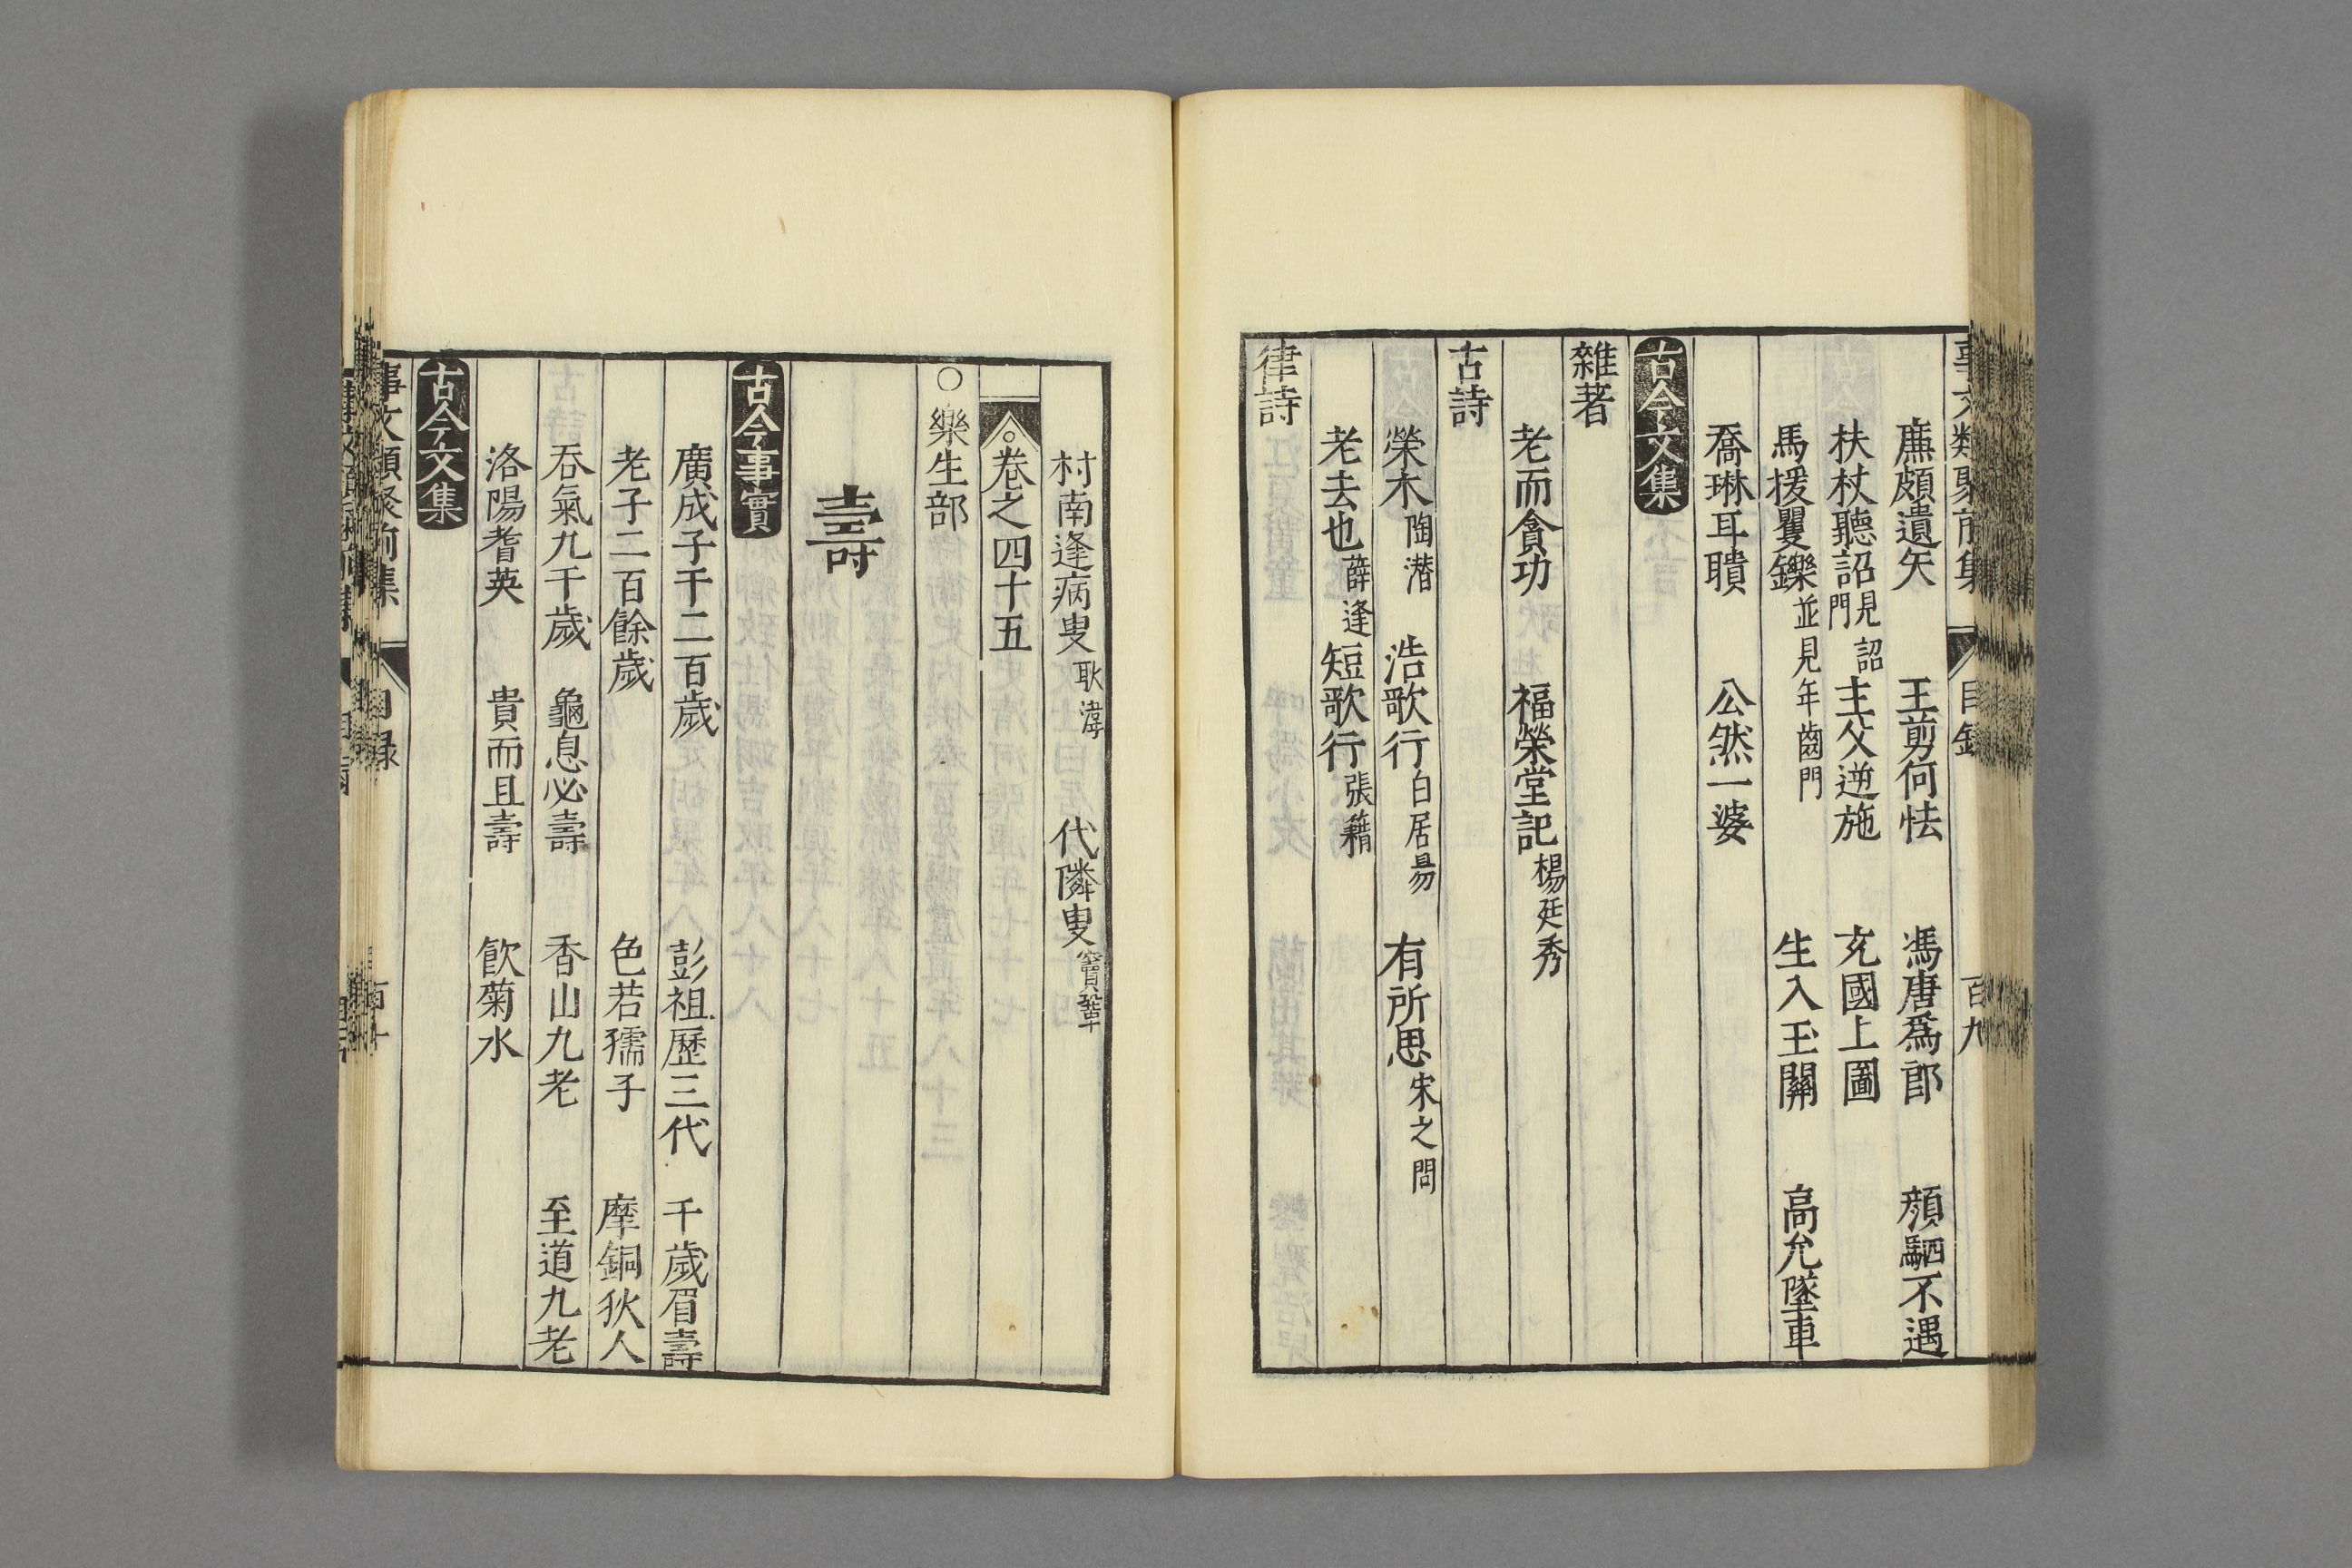 事文類聚前集 目錄 百九
廉頗遺矢 王剪何怯 馮唐爲郎 顔駟不遇
扶杖聽詔見詔門 主父逆施 充國上圖
馬援矍鑠並見年齒門 生入玉關 高允墜車
喬琳耳聵 公然一婆
古今文集
雜著
老而貪功 福榮堂記楊廷秀
古詩
榮木陶潛 浩歌行白居易 有所思宋之問
老去也薛逢 短歌行張籍
律詩
村南逢病叟耿湋 代隣叟竇鞏
卷之四十五
○樂生部
壽
古今事實
廣成子千二百歲 彭祖歷三代 千歲眉壽
老子二百餘歲 色若孺子 摩銅狄人
吞氣九千歲 龜息必壽 香山九老 至道九老
洛陽耆英 貴而且壽 飮菊水
古今文集
事文類聚前集 目録 百十